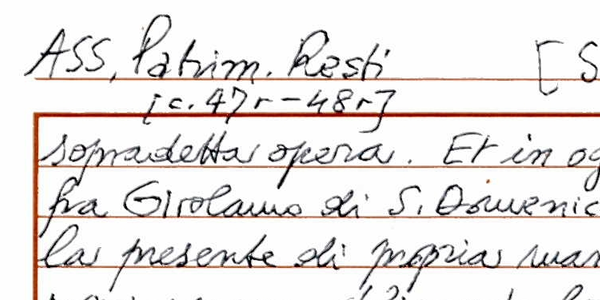 ASS, Patrim. Resti [S
[c. 47r-48r]
sopradetta opera. Et in og
fra Girolamo di S. Domenic
la presente di propria man